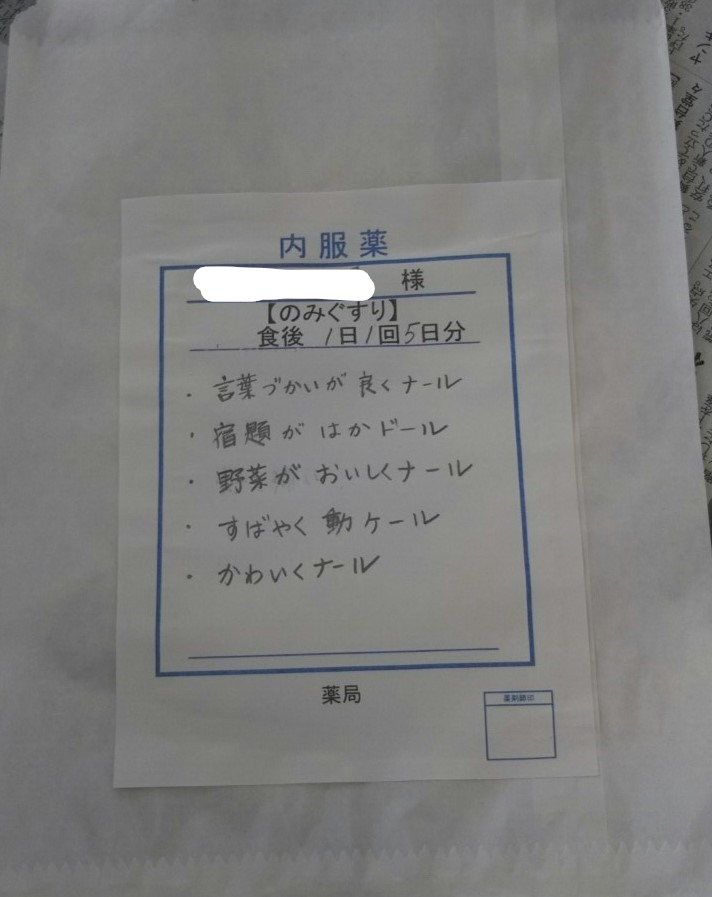 内服薬
様
【のみぐすり】
食後 1日1回5日分
・言葉づかいが 良くナール
・宿題が はかドール
・野菜が おいしくナール
・すばやく 動ケール
・かわいくナール
薬局
薬剤師印